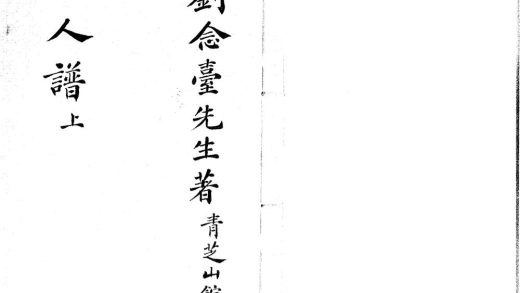 劉念臺先生著 青芝山館
人譜上